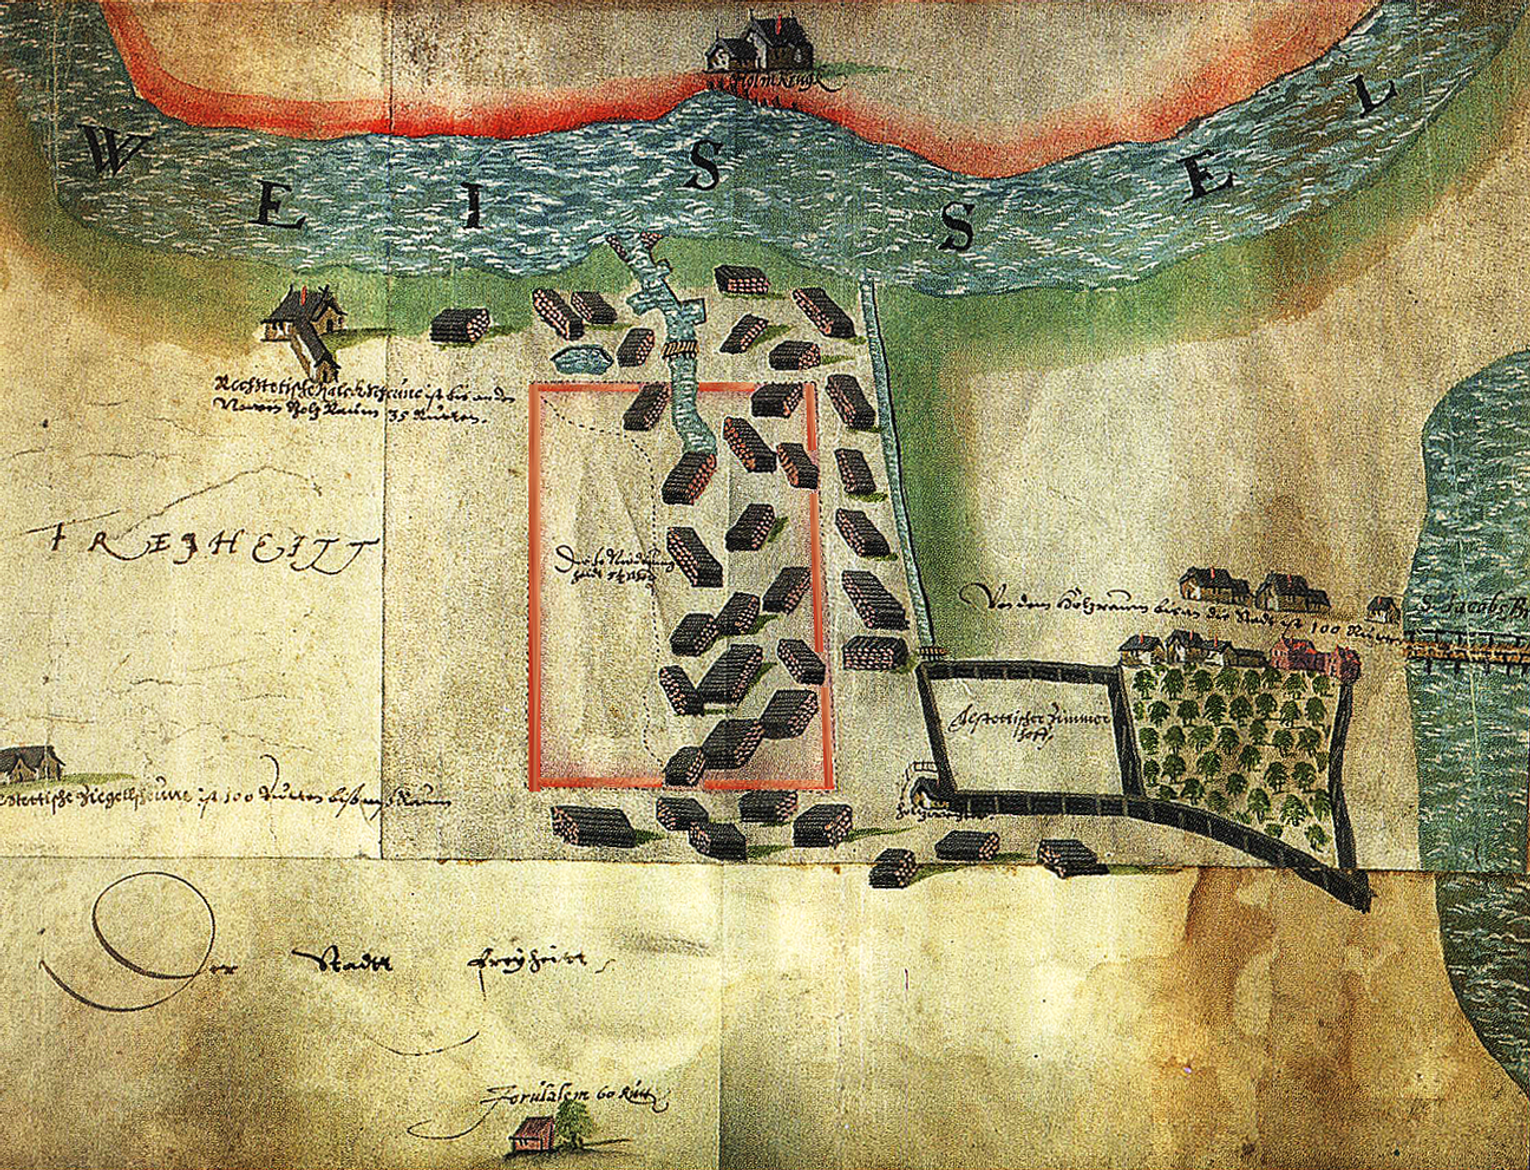 Holmkrugk
WEISSEL
Rechstetische Kalckscheune ist bis an den
Newen Holz Raum 35 Rutten.
FREIHEITT
Diese
Von dem Holzraum bis an die Stadt ist 100 Rutten
S. Jacobs
Alstettischer Zimmer
hoff.
stettische Ziegellscheune ist 100 Rutten bis Raum
Der Stadtt freyheitt
Jerusalem 60 Rutt